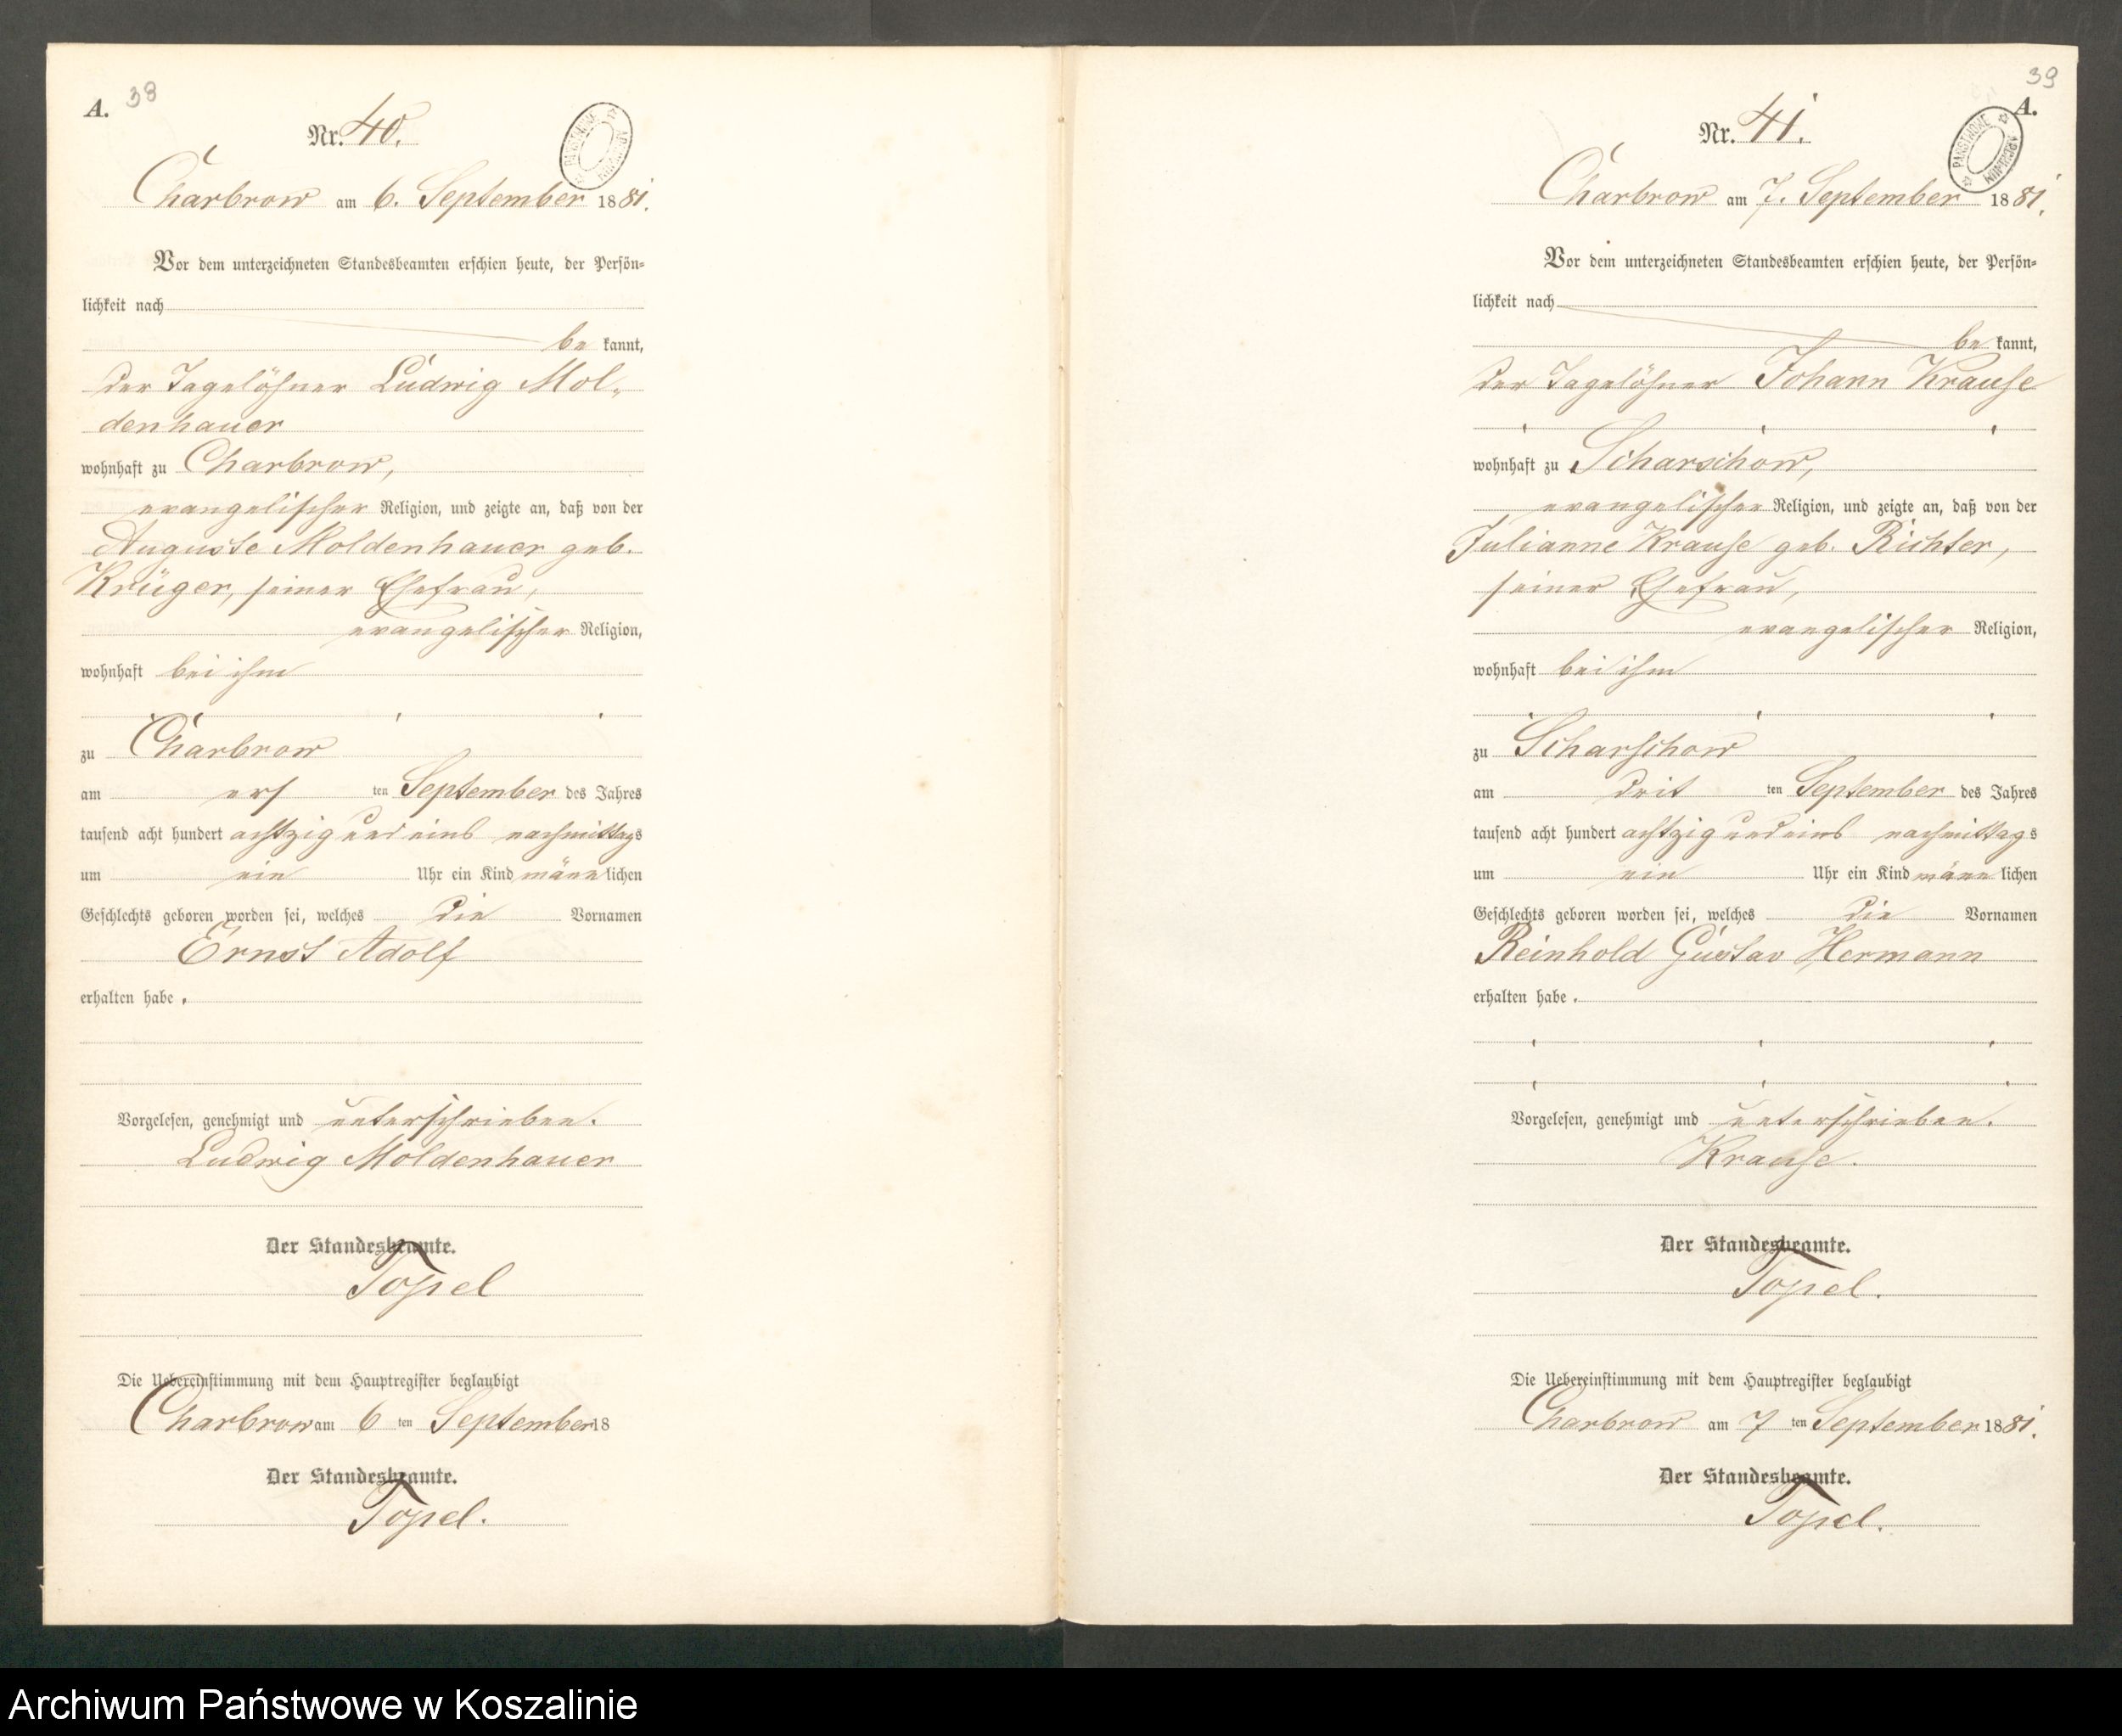 A.
38
Nr. 40.
Charbrow am 6. September 1881.
Vor dem unterzeichneten Standesbeamten erschien heute, der Persön-
lichkeit nach
be kannt,
der Tagelöhner Ludwig Mol-
denhauer
wohnhaft zu Charbrow,
evangelischer Religion, und zeigte an, daß von der
Auguste Moldenhauer geb.
Krüger, seiner Ehefrau,
evangelischer Religion,
wohnhaft bei ihm
zu Charbrow
am ers ten September des Jahres
tausend acht hundert achtzig und eins nachmittags
um ein Uhr ein Kind männlichen
Geschlechts geboren worden sei, welches die Vornamen
Ernst Adolf
erhalten habe.
Vorgelesen, genehmigt und unterschrieben.
Ludwig Moldenhauer
Der Standesbeamte.
Topel
Die Uebereinstimmung mit dem Hauptregister beglaubigt
Charbrow am 6 ten September 18
Der Standesbeamte.
Topel.
39
A.
PAŃSTWOWE ARCHIWUM
Nr. 41.
Charbrow am 7. September 1881.
Vor dem unterzeichneten Standesbeamten erschien heute, der Persön-
lichkeit nach
be kannt,
der Tagelöhner Johann Krause
wohnhaft zu Scharschow,
evangelischer Religion, und zeigte an, daß von der
Julianne Krause geb. Richter,
seiner Ehefrau,
evangelischer Religion,
wohnhaft bei ihm
zu Scharschow
am drit ten September des Jahres
tausend acht hundert achtzig und eins nachmittags
um ein Uhr ein Kind männlichen
Geschlechts geboren worden sei, welches die Vornamen
Reinhold Gustav Hermann
erhalten habe.
Vorgelesen, genehmigt und unterschrieben.
Krause.
Der Standesbeamte.
Topel.
Die Uebereinstimmung mit dem Hauptregister beglaubigt
Charbrow am 7 ten September 1881.
Der Standesbeamte.
Topel.
Archiwum Państwowe w Koszalinie